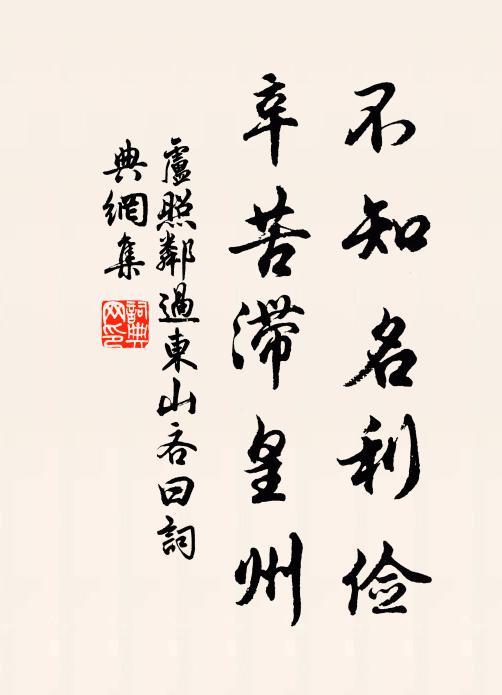 不知名利俭
辛苦滞皇州
盧照鄰過東山谷曰詞
典網集
詞典
网印